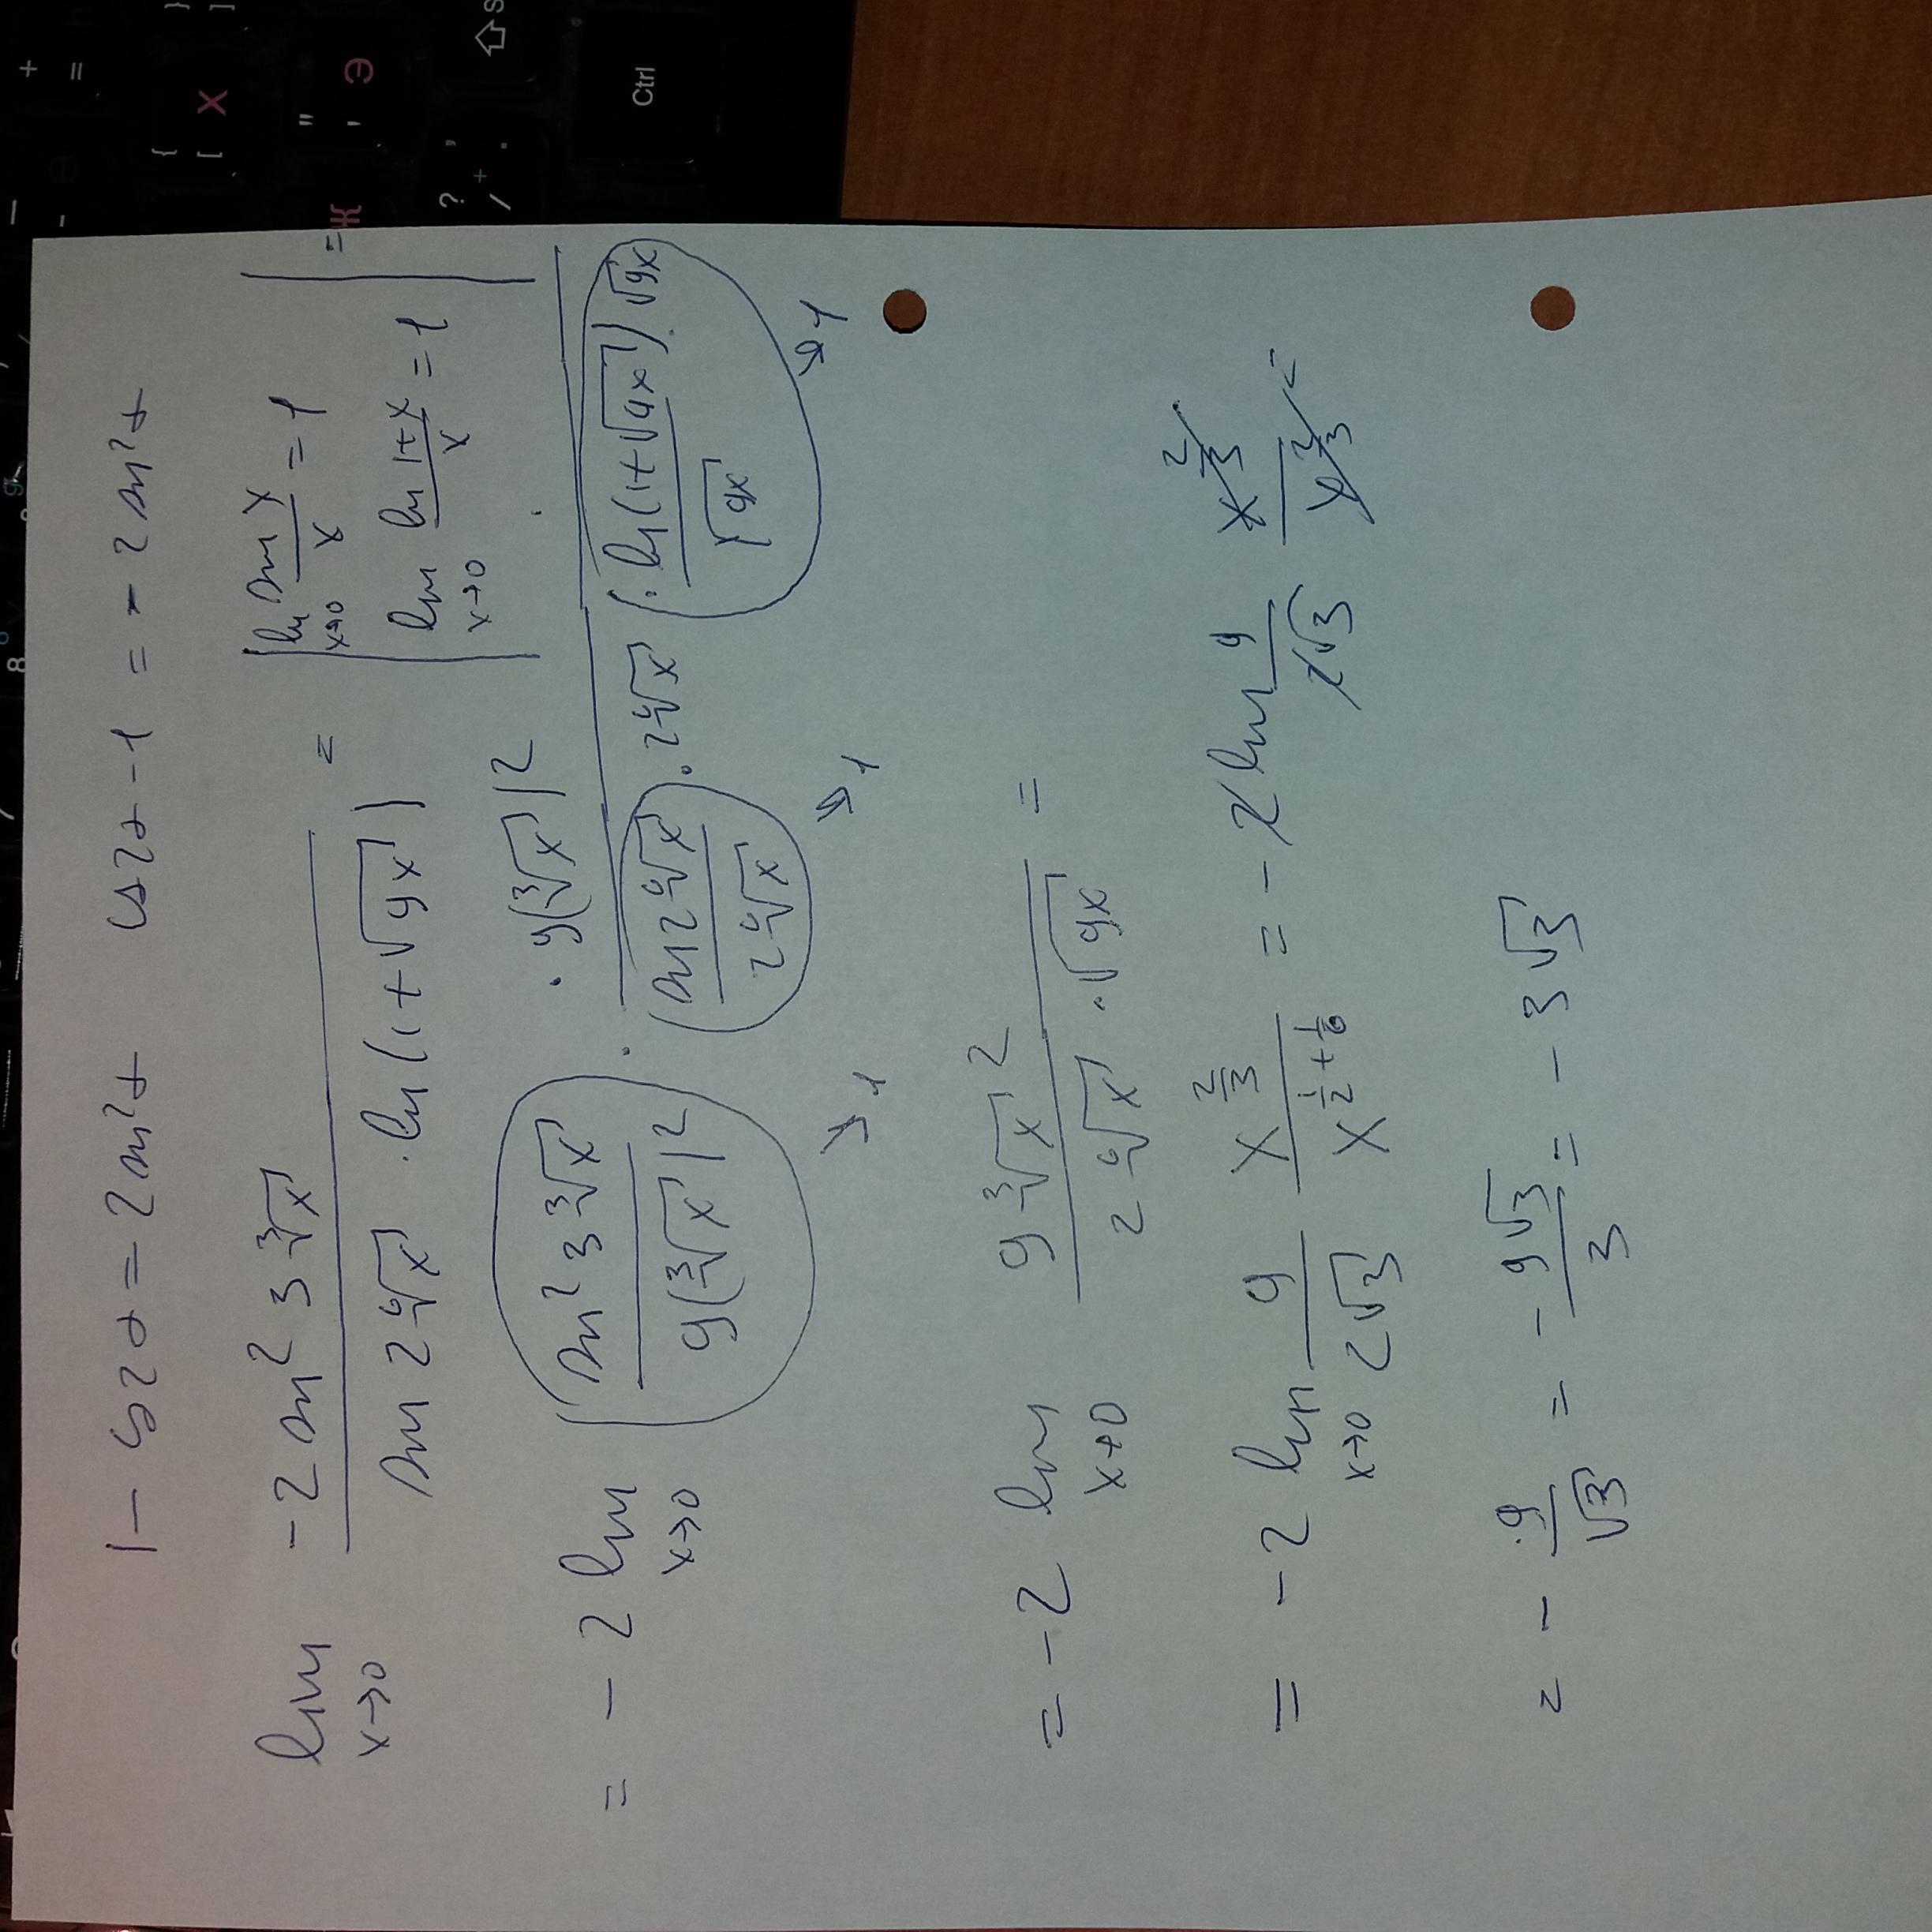 1 - cos 2α = 2 sin²α    cos 2α - 1 = - 2 sin²α
lim x→0 (-2 sin² 3∛x) / (sin 2 ⁶√x · ln(1 + √9x)) = | lim x→0 sin x / x = 1
lim x→0 ln 1+x / x = 1 | =
= - 2 lim x→0 (sin² 3∛x / 9(∛x)²) · 9(∛x)² / ((sin 2 ⁶√x / 2 ⁶√x) · 2 ⁶√x · (ln(1 + √9x) / √9x) · √9x)
→1 →1 →1
= -2 lim x→0 9 ∛x ² / (2 ⁶√x · √9x) =
= -2 lim x→0 9 / 2√3 x^(2/3) / x^(1/2 + 1/6) = - 2 lim 9 / 2√3 x^(2/3) / x^(2/3) =
= - 9 / √3 = - 9√3 / 3 = - 3√3
+ =
- -
} ]
{ [ Х
" ' Э
Ж
? / + , .
Ctrl
8
9